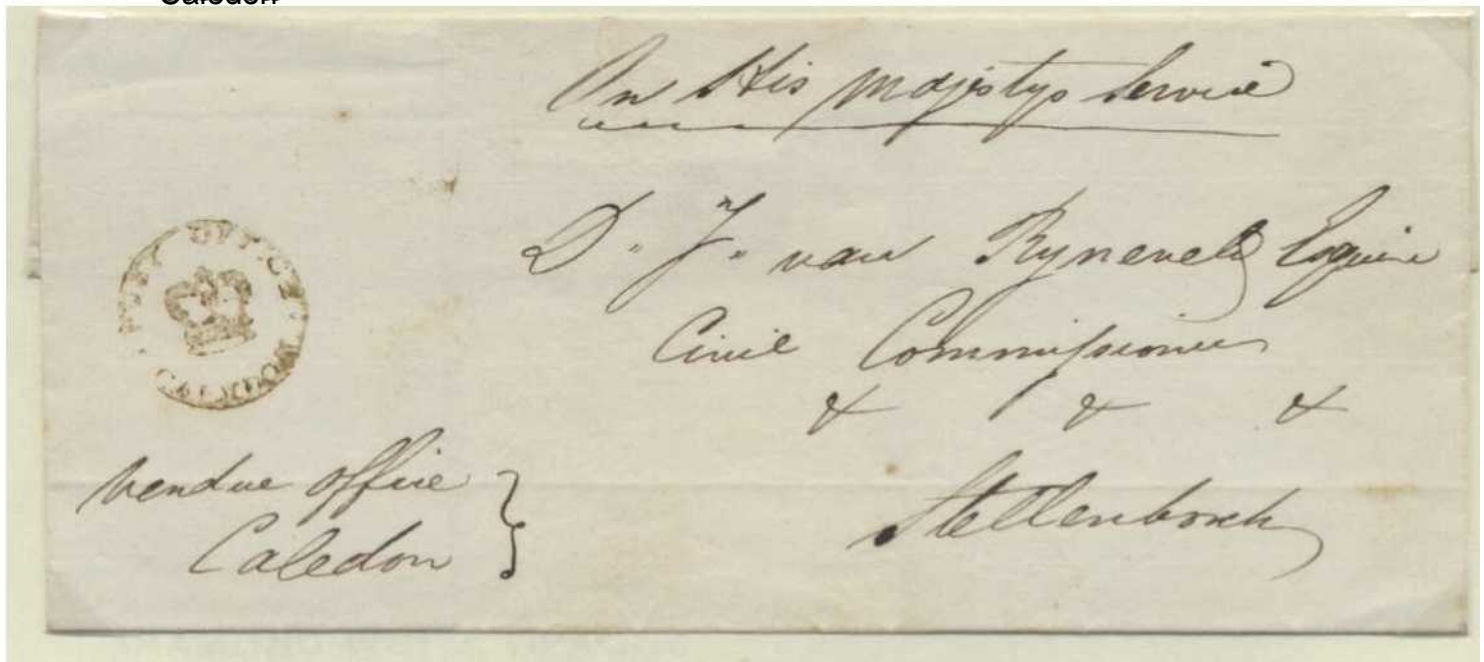 Caledon
On His Majestys Service
D. Jn. van Ryneveld Esquire
Civil Commissioner
& & &
Stellenbosch
POST OFFICE
CALEDON
Vendue Office
Caledon